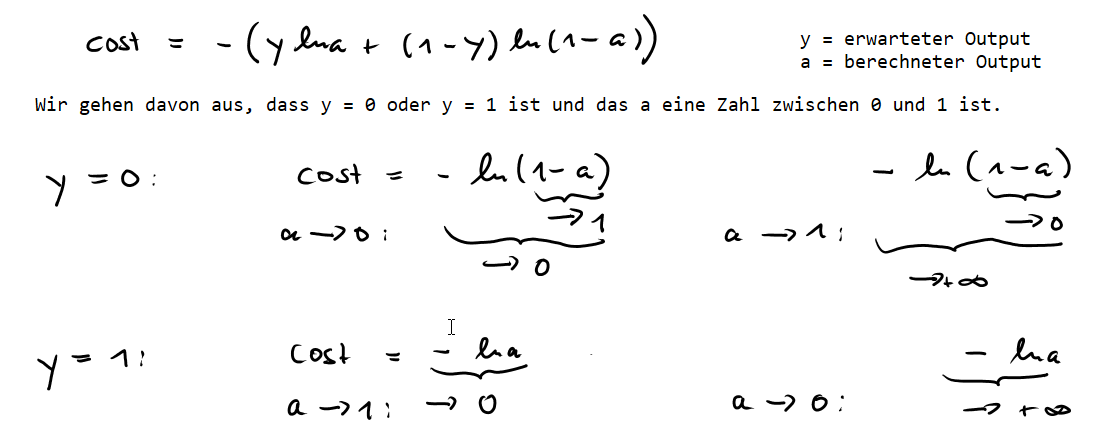 cost = - (y ln a + (1-y) ln (1-a))
y = erwarteter Output
a = berechneter Output
Wir gehen davon aus, dass y = 0 oder y = 1 ist und das a eine Zahl zwischen 0 und 1 ist.
y = 0: cost = - ln (1-a) - ln (1-a)
→ 1 → 0
a → 0: a → 1:
→ 0 → +∞
y = 1: cost = - ln a - ln a
a → 1: → 0 a → 0: → +∞